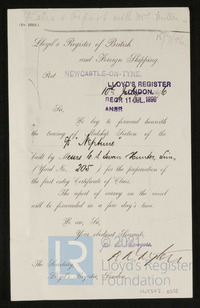 Lloyd's Register of British
and Foreign Shipping.
Port NEWCASTLE-ON-TYNE.
LLOYD'S REGISTER
LONDON.
RECD 11 JUL. 1896
ANSR
10th
6
Sir,
We beg to forward herewith
the tracing of Midship Section of the
"Neptune"
built by Messrs C. S. Swan Hunter
(Yard No. 205) for the preparation of the
first entry Certificate of Class.
The report of survey on this vessel
will be forwarded in a few day's time.
We are, Sir,
Your obedient Servants,
Surveyors
The Secretary,
Lloyd's Register, London.
© 2021
Lloyd's
Register
Foundation